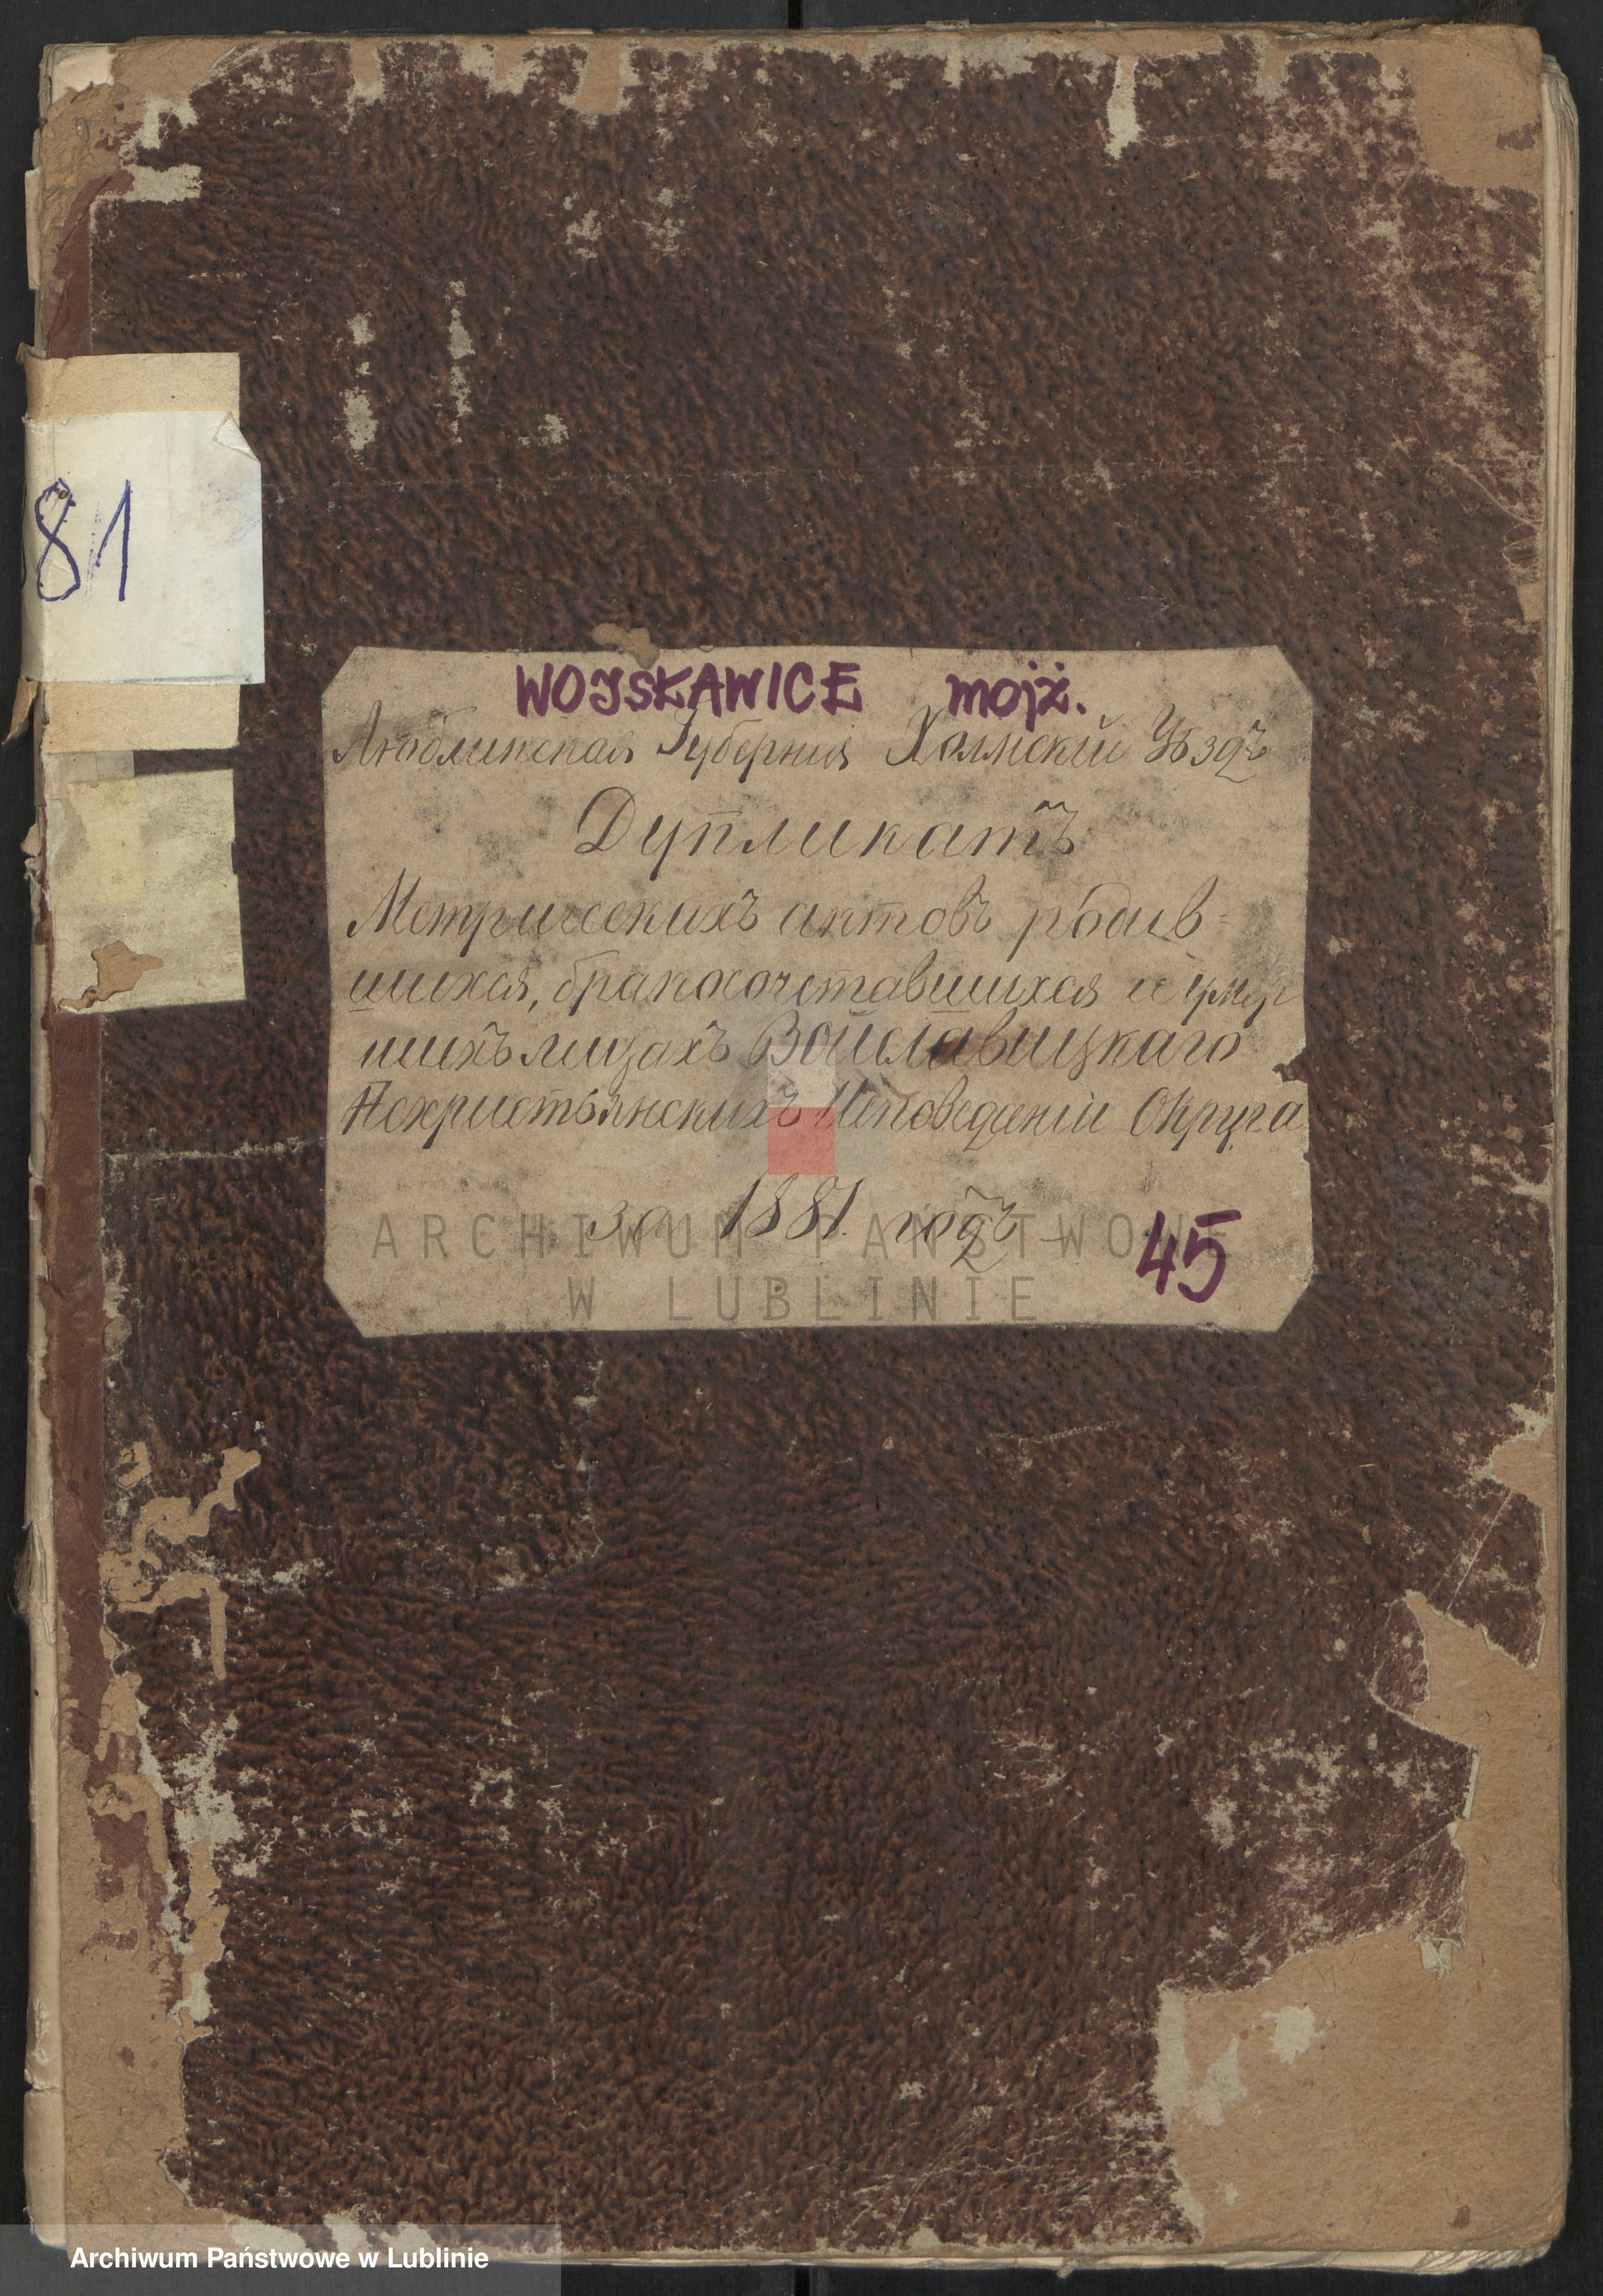 81
WOJSKAWICE mojż.
Люблинская Губернія Холмскій Уѣздъ
Дупликатъ
Метрическихъ актовъ родив-
шихся, бракосочетавшихся и умер
шихъ лицахъ Войславицкаго
Нехристьянскихъ Исповеданіи Округа
за 1881. годъ
45
ARCHIWUM PAŃSTWOWE
W LUBLINIE
Archiwum Państwowe w Lublinie